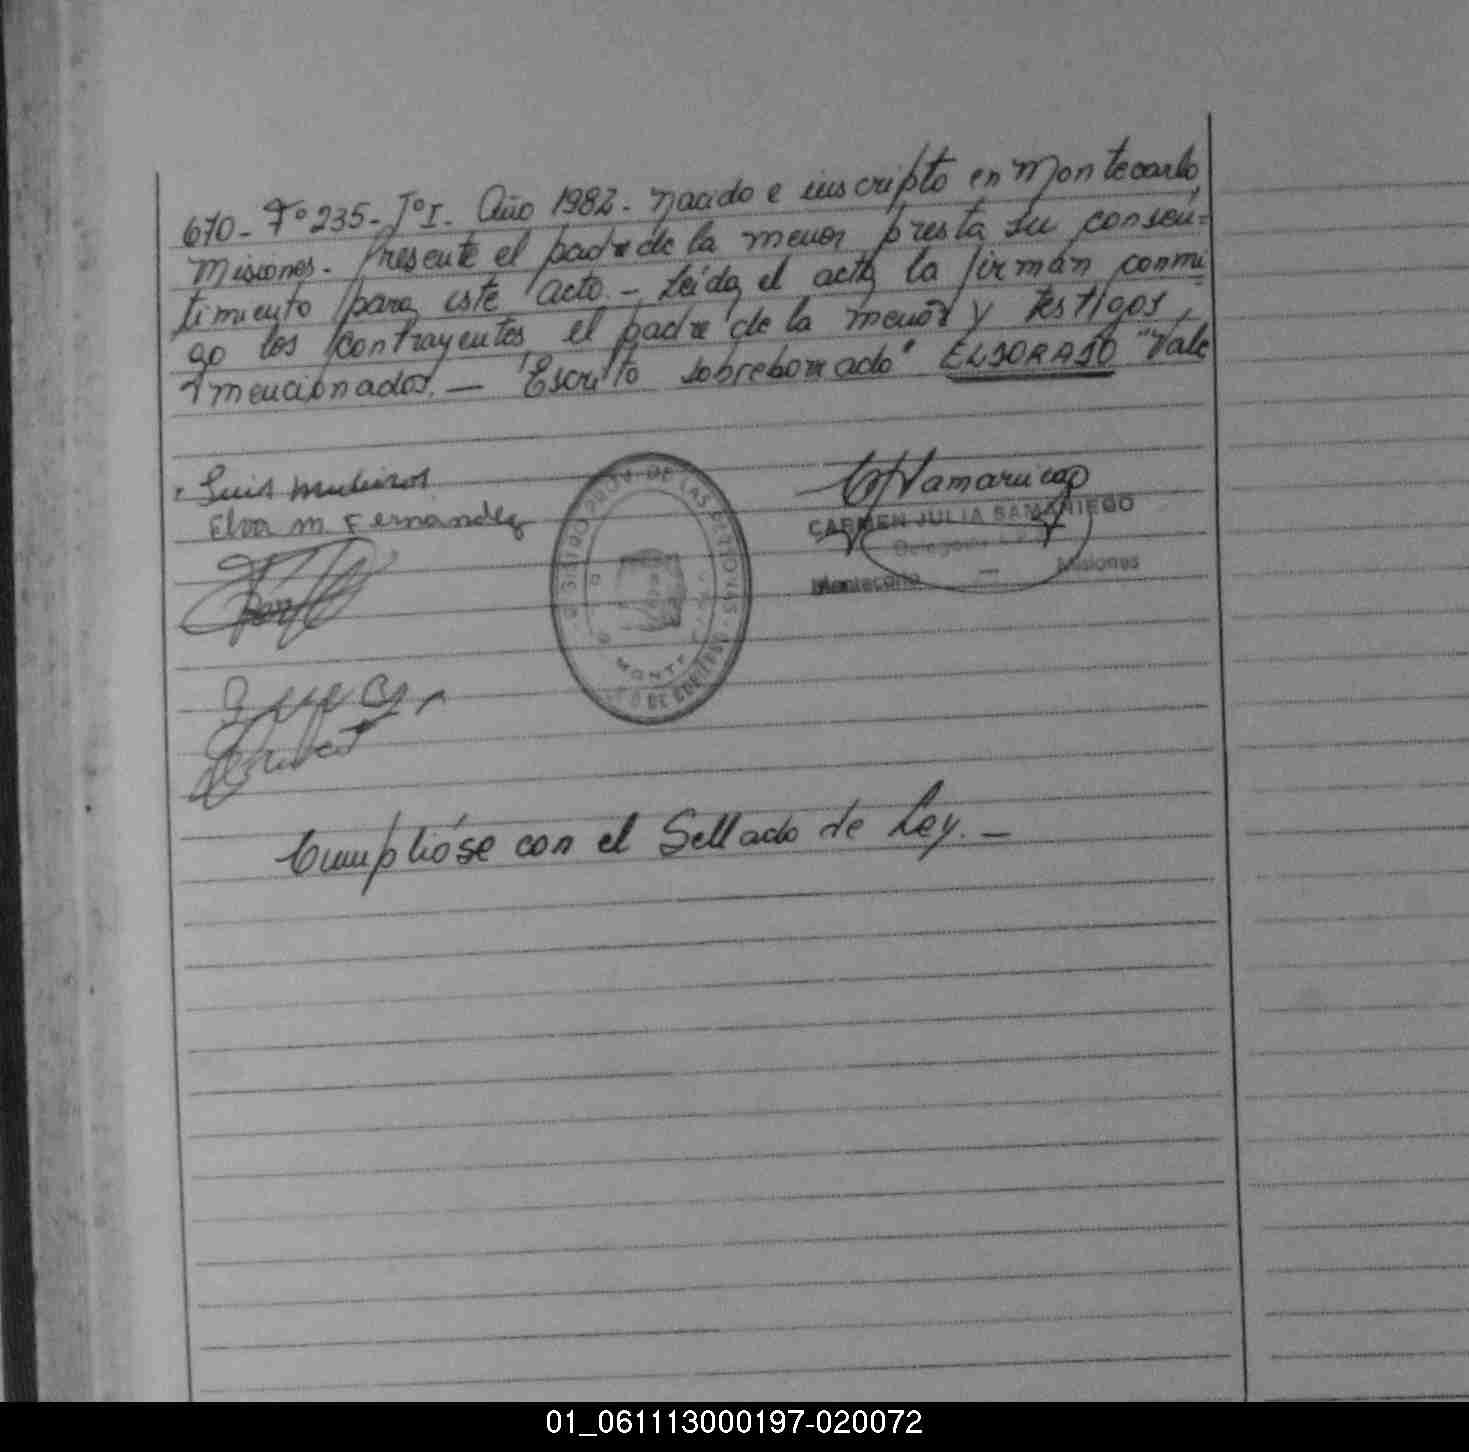 670- Fº 235- Tº I- Año 1982- nacido e inscripto en Montecarlo,
Misiones- Presente el padre de la menor presta su consen-
timiento para este acto.- Leída el acta la firman conmi-
go los contrayentes, el padre de la menor y testigos,
mencionados.— "Escrito sobreborrado" ELDORADO "Vale
Luis
Elva M. Fernandez
CARMEN JULIA SAMANIEGO
Delegada
Montecarlo — Misiones
REGISTRO PROV. DE LAS PERSONAS
MONTE
Cumplióse con el Sellado de Ley.—
01_061113000197-020072